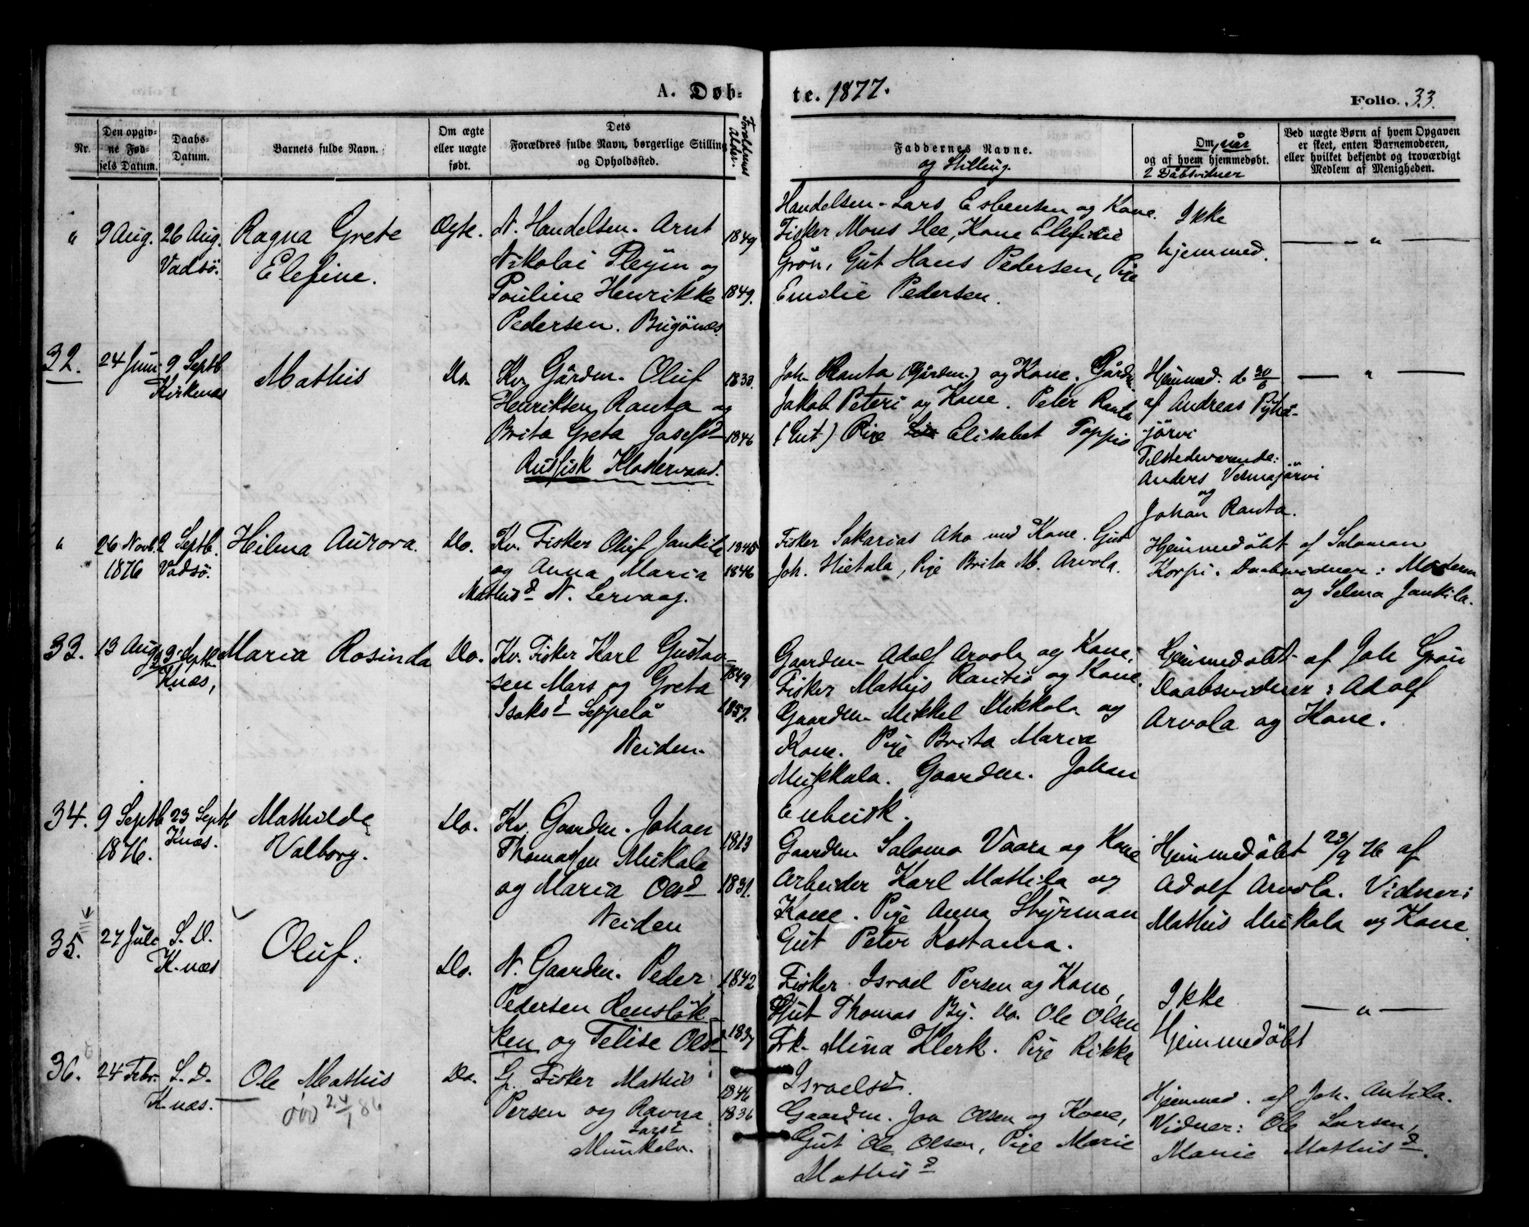 A. Døb-
te. 1877.
Folio. 33.
Nr.
Den opgiv-
ne Fød-
sels Datum.
Daabs-
Datum.
Barnets fulde Navn.
Om ægte
eller uægte
født.
Dets
Forældres fulde Navn, borgerlige Stilling
og Opholdssted.
Forældrenes
Alder.
Faddernes Navne.
og Stilling.
Om, når
og af hvem hjemmedøbt.
2 Dåbsvidner
Ved uægte Børn af hvem Opgaven
er skeet, enten Barnemoderen,
eller hvilket bekjendt og troværdigt
Medlem af Menigheden.
"
9 Aug.
26 Aug.
Vadsö.
Ragna Grete
Elefine.
Ægte.
N. Handelsm. Arnt
Nikolai Pleym og
Pouline Henrikke
Pedersen. Bugönæs
1849
1849.
Handelsm. Lars Esbensen og Kone.
Fisker Mons Hee, Kone Elefine
Grön, Gut Hans Pedersen, Pige
Emilie Pedersen.
Ikke
hjemmed.
— " —
32.
24 Juni
9 Septb.
Kirkenæs
Mathis
Do.
Kv. Gårdm. Oluf
Henriksen Ranta og
Brita Greta Josefsd
Russisk Klostervand.
1830.
1846
Joh. Ranta (Gårdm.) og Kone. Gårdm.
Jakob Peteri og Kone. Peter Ranta
(Gut) Pige Elisabet Toppio
Hjemmed. d. 30/6
af Andreas Pyhä-
järvi
Tilstedeværende:
Anders Vesmajärvi
og
Johan Ranta.
— " —
"
26 Novb.
1876
2 Septb.
Vadsö.
Hilma Aurora.
Do.
Kv. Fisker Oluf Jankila
og Anna Maria
Mathisd N. Lervaag.
1845
1846
Fisker Sakarias Aho med Kone. Gut
Joh. Hietala, Pige Brita M. Arvola.
Hjemmedöbt af Salomon
Korpi. Daabsvidner: Moderen
og Selma Jankila.
33.
13 Aug.
23 Septb.
K.næs,
Maria Rosinda
Do.
Kv. Fisker Karl Gustav-
sen Mars og Greta
Isaksd Seppelä
Neiden.
1849
1857.
Gaardm. Adolf Arvola og Kone,
Fisker Mathis Rantio og Kone.
Gaardm. Mikkel Mikkola og
Kone. Pige Brita Maria
Mikkala. Gaardm. Johan
Enbusk.
Hjemmedöbt af Joh. Grön
Daabsvidner: Adolf
Arvola og Kone.
34.
9 Septb.
1876.
23 Septb.
K.næs.
Mathilde
Valborg.
Do.
Kv. Gaardm. Johan
Thomassen Mikala
og Maria Olsd
Neiden
1823
1831.
Gaardm. Salomo Vaara og Kone
Arbeider Karl Mattila og
Kone. Pige Anna Styrman
Gut Peter Kostama.
Hjemmedöbt 23/9 76 af
Adolf Arvola. Vidner:
Mathis Mikala og Kone.
35.
27 Juli
S. D.
K.næs
Oluf.
Do.
N. Gaardm. Peder
Pedersen Renslök-
ken og Felise Olsd
1842
1837
Fisker Israel Persen og Kone,
Gut Thomas By. do. Ole Olsen
Frk. Mina Klerk. Pige Rikke
Israelsd.
Ikke
Hjemmedöbt
— " —
36.
24 Febr.
S. D.
K.næs.
Ole Mathis
død 24/1 86
Do.
G. Fisker Mathis
Persen og Ravna
Larsd
Munkelv.
1846
1836
Gaardm. Joa Olsen og Kone,
Gut Ole Olsen, Pige Marie
Mathisd
Hjemmed. af Joh. Antila.
Vidner: Ole Larsen,
Marie Mathisd.